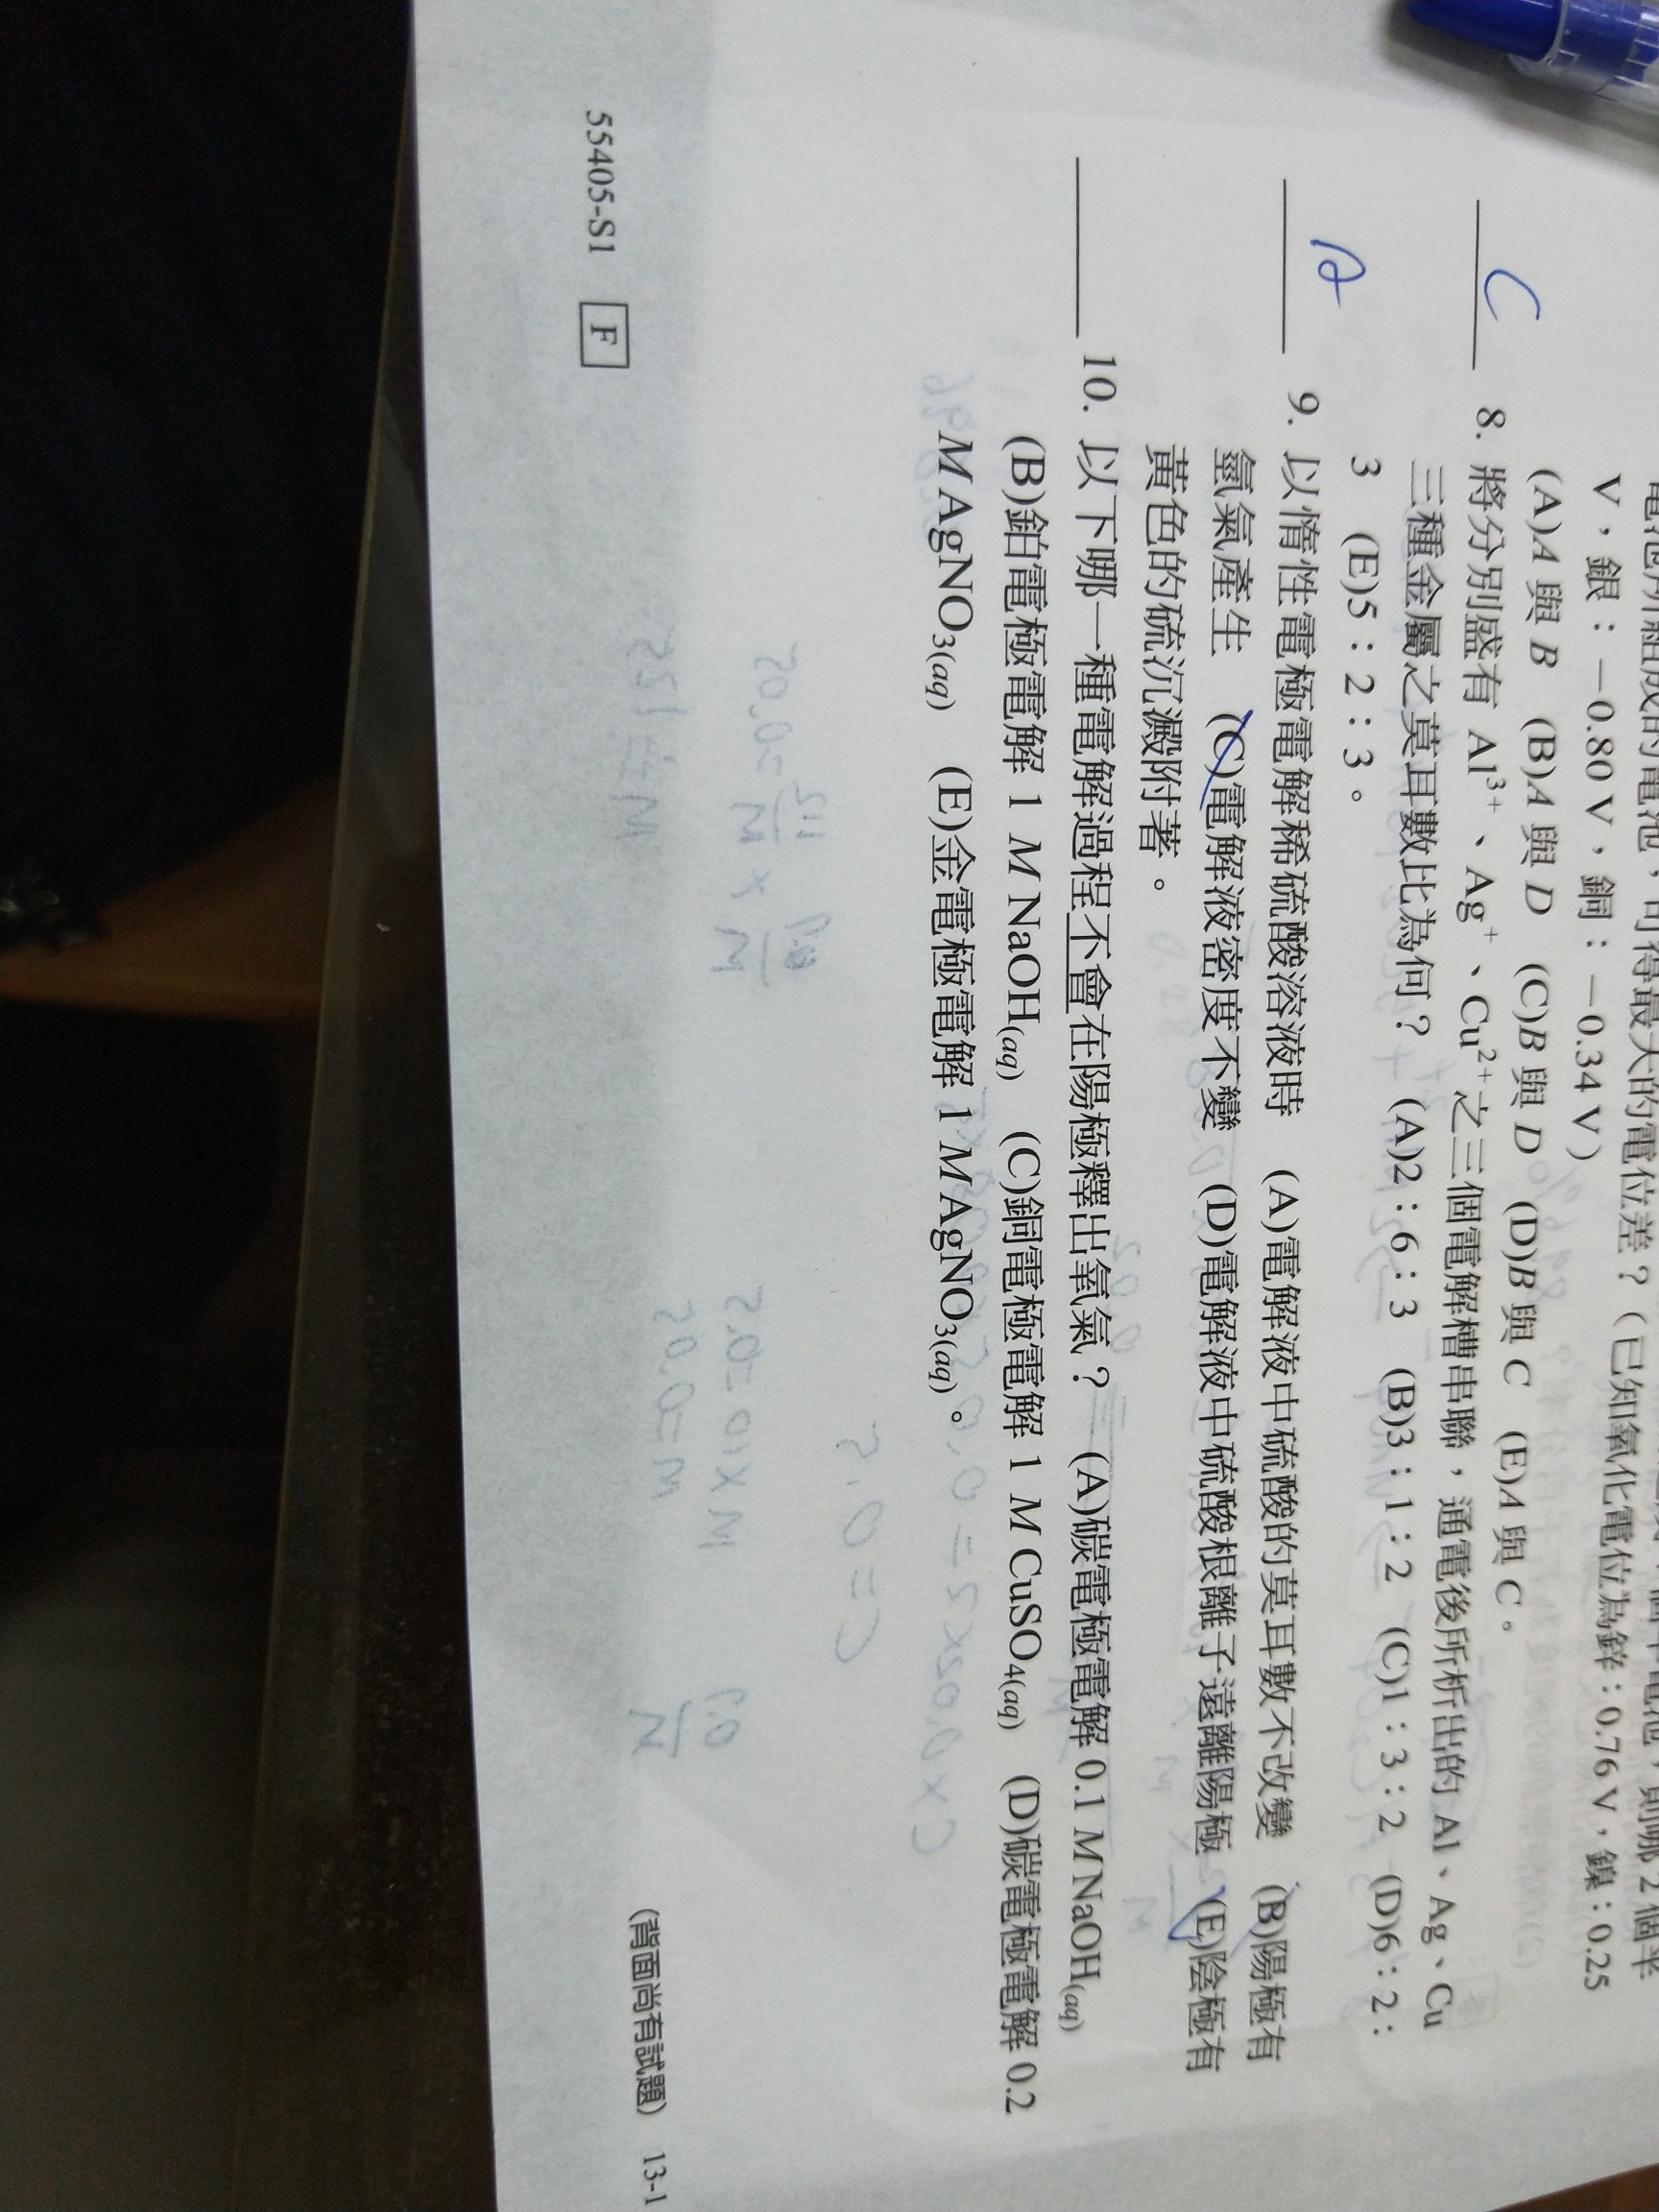 電池所組成的電池，可得最大的電位差？（已知氧化電位為鋅：0.76 V，鎳：0.25
V，銀：－0.80 V，銅：－0.34 V）
(A)A 與 B (B)A 與 D (C)B 與 D (D)B 與 C (E)A 與 C。
C 8. 將分別盛有 Al³⁺、Ag⁺、Cu²⁺之三個電解槽串聯，通電後所析出的 Al、Ag、Cu
三種金屬之莫耳數比為何？ (A)2：6：3 (B)3：1：2 (C)1：3：2 (D)6：2：
3 (E)5：2：3。
A 9. 以惰性電極電解稀硫酸溶液時 (A)電解液中硫酸的莫耳數不改變 (B)陽極有
氫氣產生 (C)電解液密度不變 (D)電解液中硫酸根離子遠離陽極 (E)陰極有
黃色的硫沉澱附著。
10. 以下哪一種電解過程不會在陽極釋出氧氣？ (A)碳電極電解 0.1 M NaOH(aq)
(B)鉑電極電解 1 M NaOH(aq) (C)銅電極電解 1 M CuSO₄(aq) (D)碳電極電解 0.2
M AgNO₃(aq) (E)金電極電解 1 M AgNO₃(aq)。
55405-S1 F (背面尚有試題) 13-1